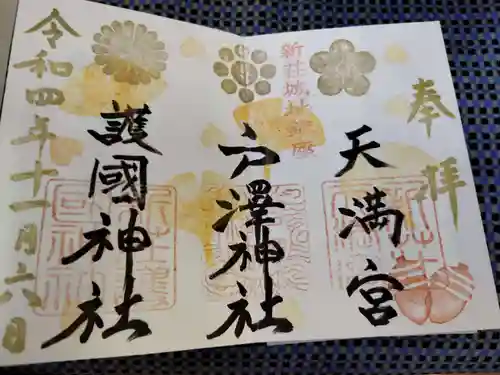 奉拝
天満宮
新荘城址鎮座
戸澤神社
護國神社
令和四年十一月六日